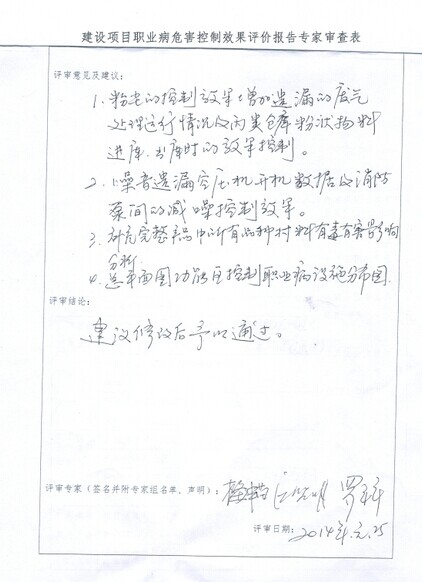 建设项目职业病危害控制效果评价报告专家审查表
评审意见及建议:
1. 粉尘的控制效果增加遗漏的废气
处理运行情况及丙类仓库粉状物料
进库、出库时的效果控制。
2. 噪音遗漏空压机开机数据及消防
泵间的减噪控制效果。
3. 补充完整品中所有品种材料有毒有害影响
分析
4. 平面图功能区控制职业病设施分布图
评审结论:
建议修改后予以通过。
评审专家(签名并附专家组名单、声明):
评审日期: 2014年.元.25